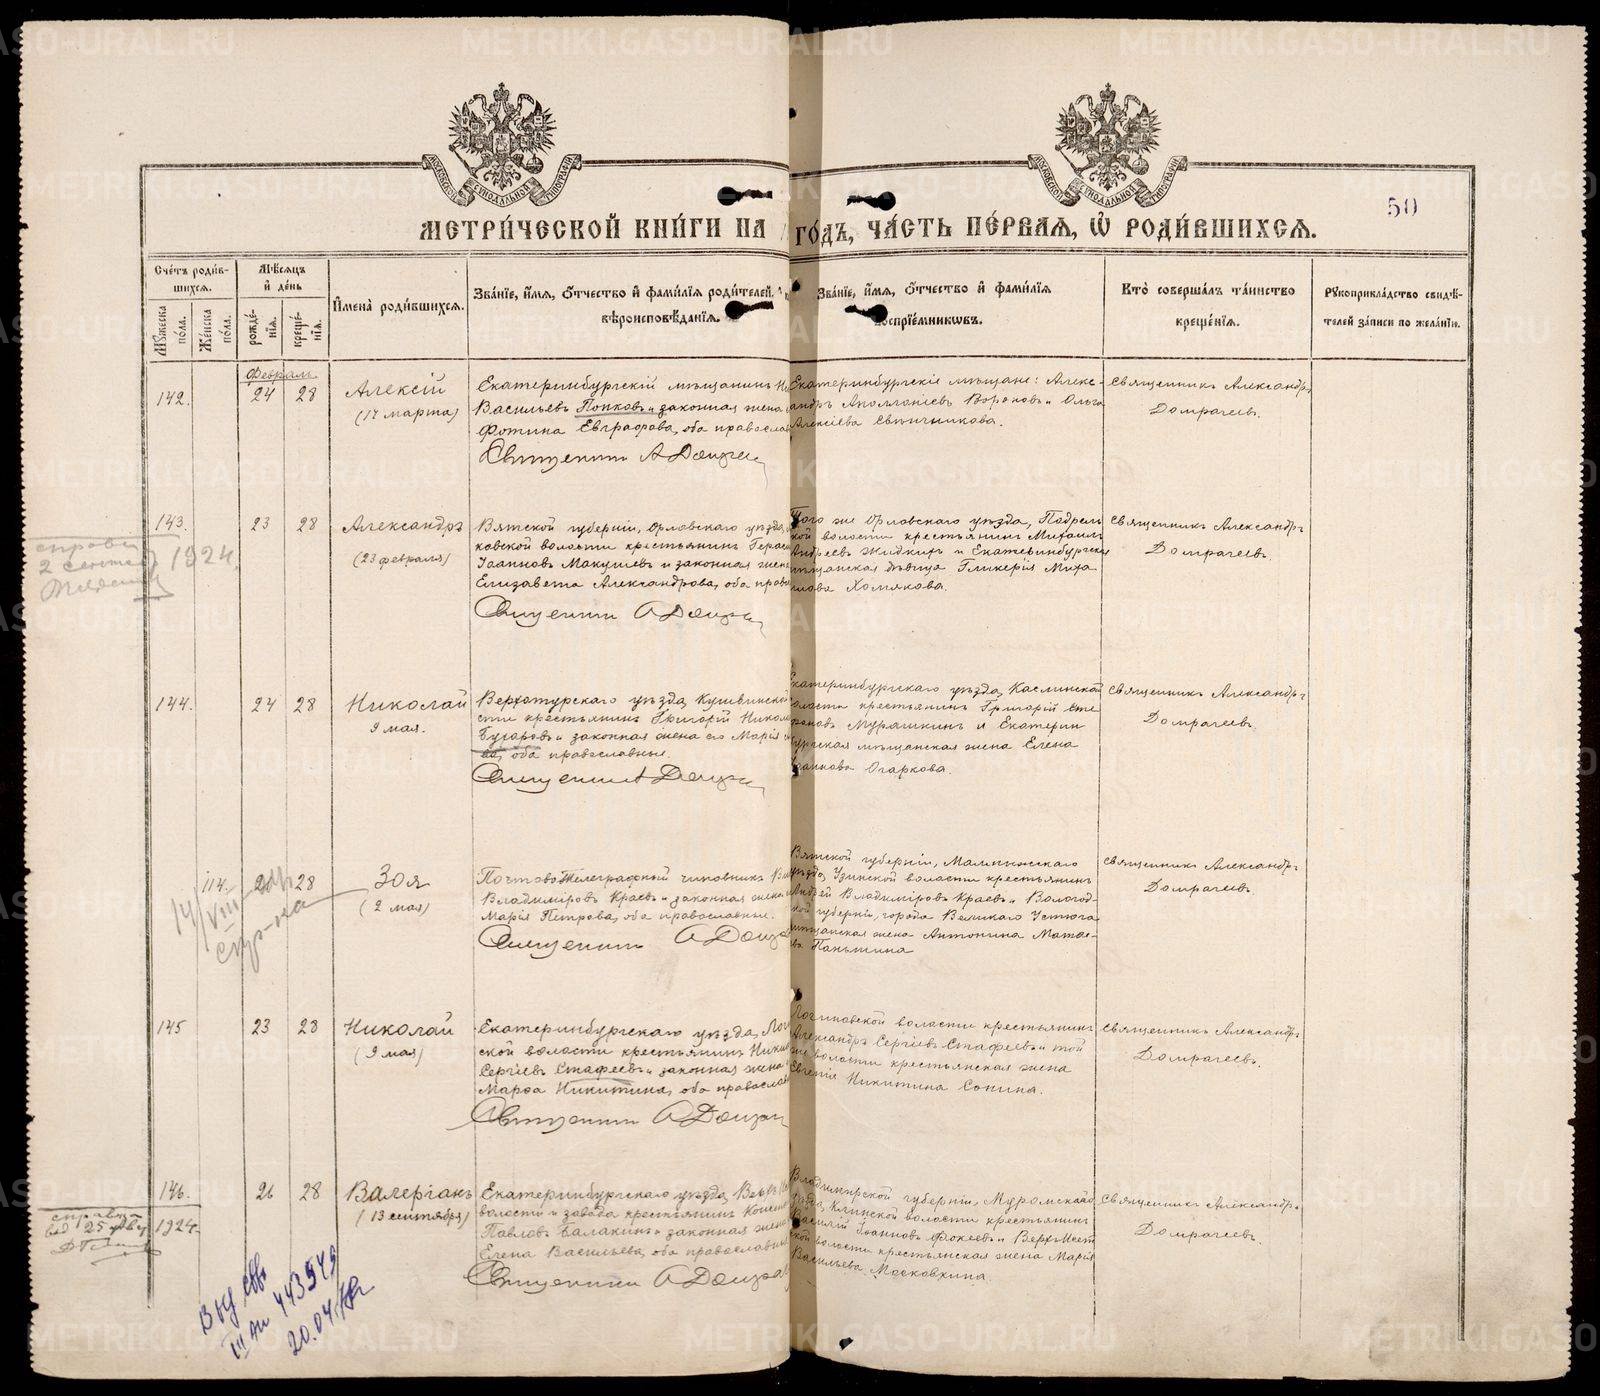 50
МЕТРИ́ЧЕСКОЙ КНИ́ГИ НА ГО́ДЪ, ЧА́СТЬ ПЕ́РВАЯ, Ѡ҆ РОДИ́ВШИХСЯ.
Сче́тъ роди́в-
шихся.
Мѣсяцъ
и҆ де́нь
Мꙋ́жеска
по́ла.
Же́нска
по́ла.
рожде́-
нїя.
креще́-
нїя.
И҆мена̀ роди́вшихся.
Зва́нїе, и҆́мя, ѻ҆́тчество и҆ фами́лїя роди́телей,
вѣроисповѣ́данїя.
Зва́нїе, и҆́мя, ѻ҆́тчество и҆ фами́лїя
воспрїе́мникѡвъ.
Кто̀ соверша́лъ та́инство
креще́нїя.
Рꙋкоприкла́дство свидѣ́-
телей за́писи по жела́нїю.
Февраль
142.
24
28
Алексій
(17 марта)
Екатеринбургскій мѣщанинъ
Васильевъ Попковъ и законная жена
Фотина Евграфова, оба православ
Священникъ А Домрачев
Екатеринбургскіе мѣщане: Алекс-
андръ Аполлоніевъ Вороновъ и Ольга
Алексіева Свѣчникова.
Священникъ Александръ
Домрачевъ.
143.
23
28
Александръ
(23 февраля)
Вятской губерніи, Орловскаго уѣзда,
ковской волости крестьянинъ Гераси
Іоанновъ Макушевъ и законная жена
Елизавета Александрова, оба право
Священникъ А Домрачев
Того же Орловскаго уѣзда,
кой волости крестьянинъ Михаилъ
Андреевъ Жидкихъ и Екатеринбургская
мѣщанская дѣвица Гликерія Миха
илова Хомякова.
Священникъ Александръ
Домрачевъ.
1924.
144.
24
28
Николай
9 мая.
Верхотурскаго уѣзда, Кушвинской
сти крестьянинъ Григорій Никол
и законная жена его Марія
ва, оба православные.
Священникъ А Домрачев
Екатеринбургскаго уѣзда, Каслинской
волости крестьянинъ Григорій Сте
фановъ Мурашкинъ и Екатерин
бургская мѣщанская жена Елена
Іоаннова Огаркова.
Священникъ Александръ
Домрачевъ.
114.
28
Зоя
(2 мая)
14/VIII
Почтово-Телеграфный чиновникъ
Владиміровъ Краевъ и законная жена
Марія Петрова, оба православные.
Священникъ А Домрачев
Вятской губерніи, Малмыжскаго
уѣзда, Узинской волости крестьянинъ
Андрей Владиміровъ Краевъ и Вологод-
кой губерніи, города Великаго Устюга
мѣщанская жена Антонина Матѳе-
ва Паньшина
Священникъ Александръ
Домрачевъ.
145
23
28
Николай
(9 мая)
Екатеринбургскаго уѣзда, Лог
ской волости крестьянинъ
Сергіевъ Стафеевъ и законная жена
Марѳа Никитина, оба православ
Священникъ А Домрач
Логиновской волости крестьянинъ
Александръ Сергіевъ Стафеевъ и той
же волости крестьянская жена
Евгенія Никитина Сонина.
Священникъ Александръ
Домрачевъ.
146.
26
28
Валеріанъ
(13 сентября)
1924.
Екатеринбургскаго уѣзда,
волости и завода крестьянинъ
Павловъ Балакинъ и законная жена
Елена Васильева, оба православные
Священникъ А Домрач
Владимірской губерніи, Муромскаго
уѣзда, Клинской волости крестьянинъ
Василій Іоанновъ Фокеевъ и Верхъ-Исет
кой волости крестьянская жена Марія
Васильева Московкина.
Священникъ Александръ
Домрачевъ.
443549
20.04
METRIKI.GASO-URAL.RU